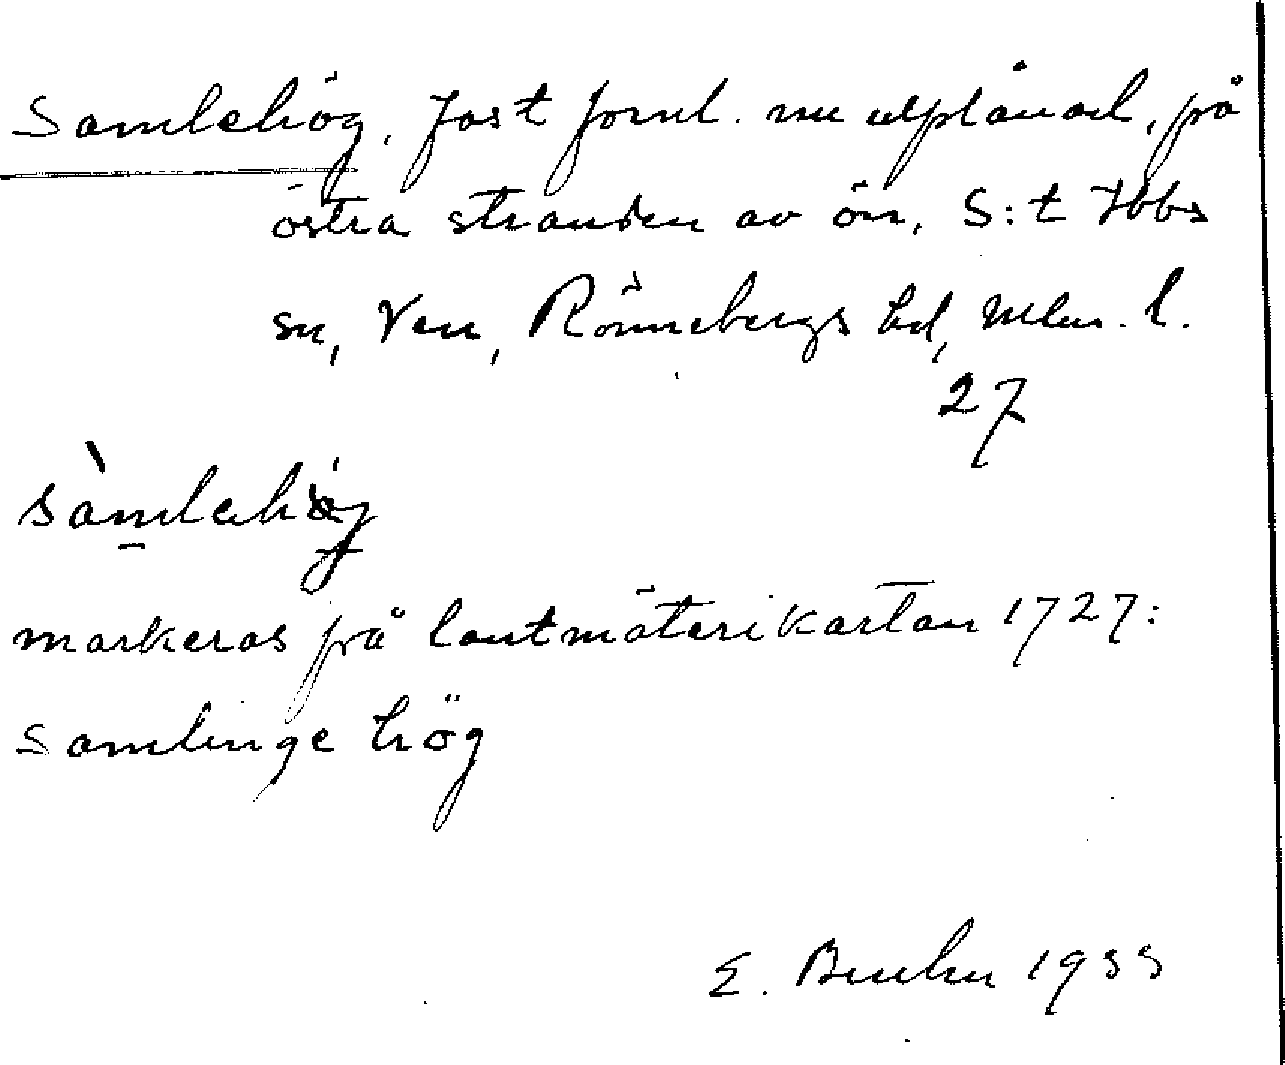 Samlehög. Fast fornl. nu utplånad, på
östra stranden av ön. S:t Ibbs
sn, Ven, Rönnebergs hd, Mlm. l.
27
sàmlehög
markeras på lantmäterikartan 1727:
Samlinge hög
E. 1955